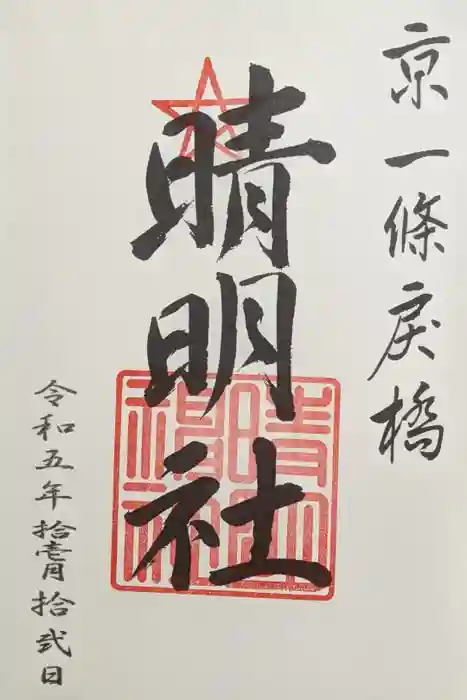 京一條戻橋
晴明社
令和五年拾壱月拾弐日